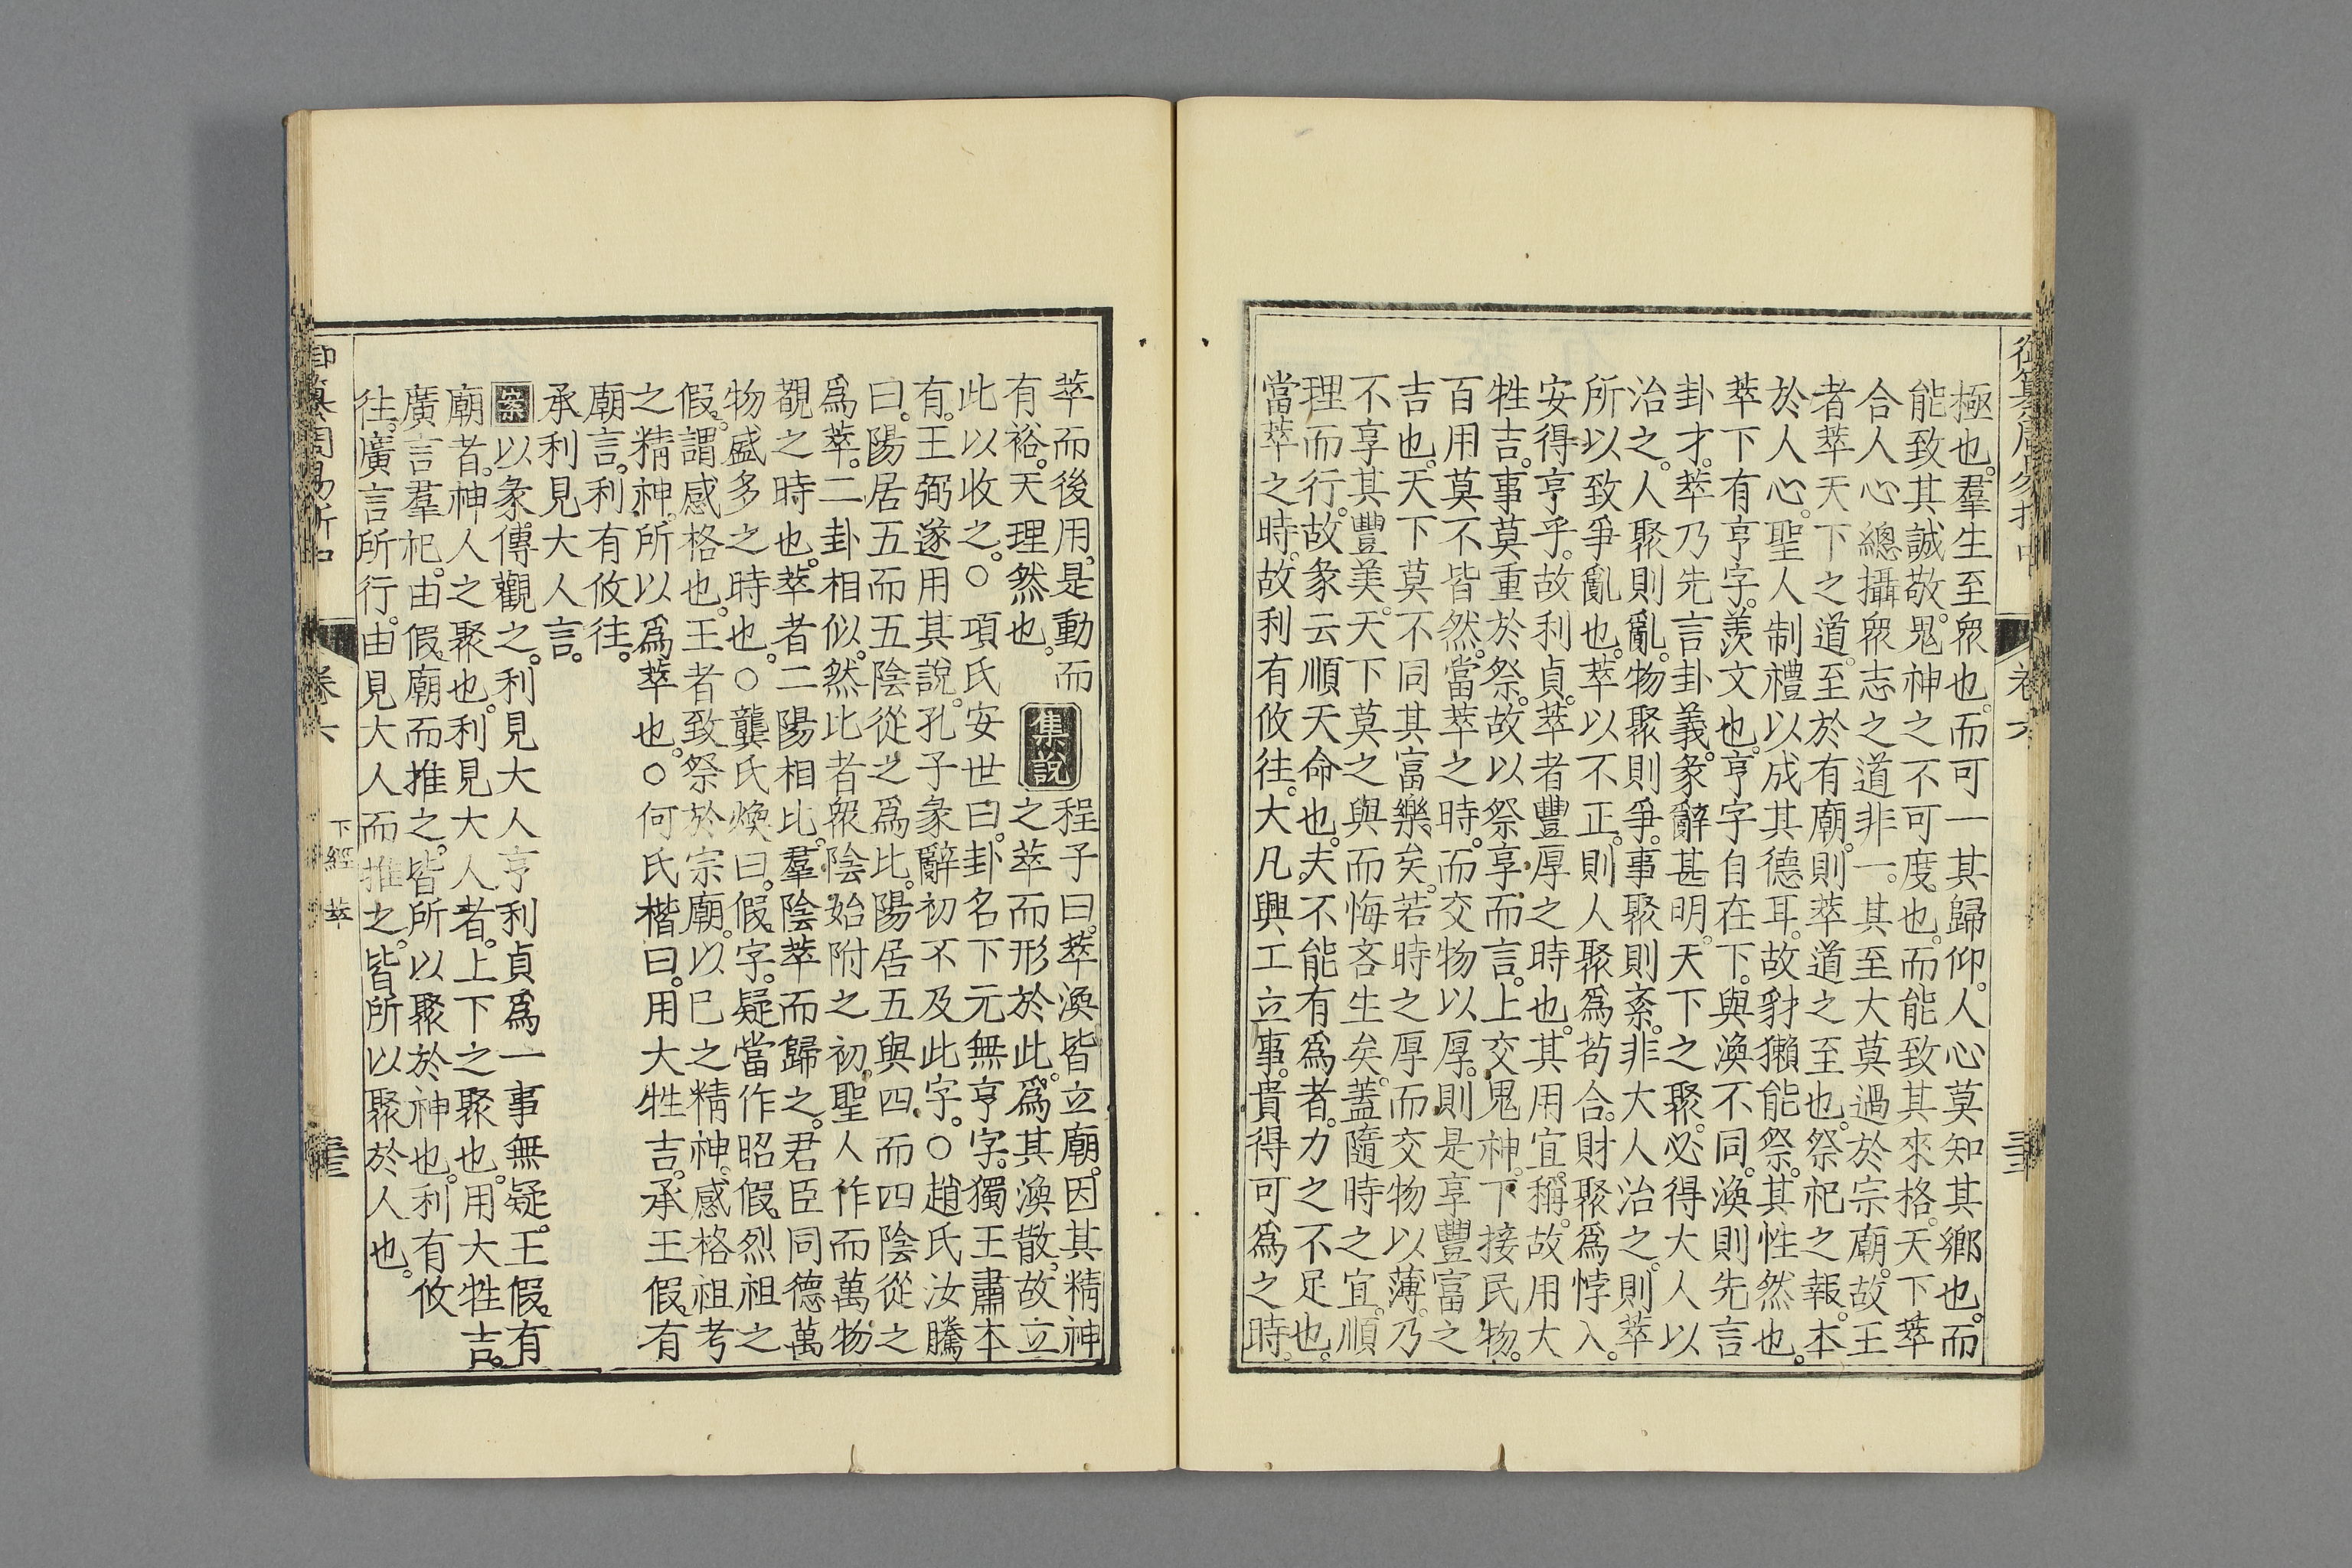 極也。羣生至眾也。而可一其歸仰。人心莫知其鄉也。而
能致其誠敬。鬼神之不可度也。而能致其來格。天下萃
合人心總攝眾志之道非一。其至大莫過於宗廟。故王
者萃天下之道。至於有廟。則萃道之至也。祭祀之報。本
於人心。聖人制禮以成其德耳。故豺獺能祭。其性然也。
萃下有亨字。羨文也。亨字自在下。與渙不同。渙則先言
卦才。萃乃先言卦義。彖辭甚明。天下之聚。必得大人以
治之。人聚則亂。物聚則爭。事聚則紊。非大人治之。則萃
所以致爭亂也。萃以不正。則人聚爲苟合。財聚爲悖入。
安得亨乎。故利貞。萃者豐厚之時也。其用宜稱。故用大
牲吉。事莫重於祭。故以祭享而言。上交鬼神。下接民物。
百用莫不皆然。當萃之時。而交物以厚。則是享豐富之
吉也。天下莫不同其富樂矣。若時之厚而交物以薄。乃
不享其豐美。天下莫之與而悔吝生矣。蓋隨時之宜。順
理而行。故彖云順天命也。夫不能有爲者。力之不足也。
當萃之時。故利有攸往。大凡興工立事。貴得可爲之時。
萃而後用。是動而
有裕。天理然也。
集說
程子曰。萃渙皆立廟。因其精神
之萃而形於此。爲其渙散。故立
此以收之。○項氏安世曰。卦名下元無亨字。獨王肅本
有。王弼遂用其說。孔子彖辭初不及此字。○趙氏汝騰
曰。陽居五而五陰從之爲比。陽居五與四。而四陰從之
爲萃。二卦相似。然比者眾陰始附之初。聖人作而萬物
覩之時也。萃者二陽相比。羣陰萃而歸之。君臣同德萬
物盛多之時也。○龔氏煥曰。假字。疑當作昭假烈祖之
假。謂感格也。王者致祭於宗廟。以已之精神。感格祖考
之精神。所以爲萃也。○何氏楷曰。用大牲吉。承王假有
廟言。利有攸往。
承利見大人言。
案以彖傳觀之。利見大人亨利貞爲一事無疑。王假有
廟者。神人之聚也。利見大人者。上下之聚也。用大牲吉。
廣言羣祀。由假廟而推之。皆所以聚於神也。利有攸
往。廣言所行。由見大人而推之。皆所以聚於人也。
卷六
下經 萃